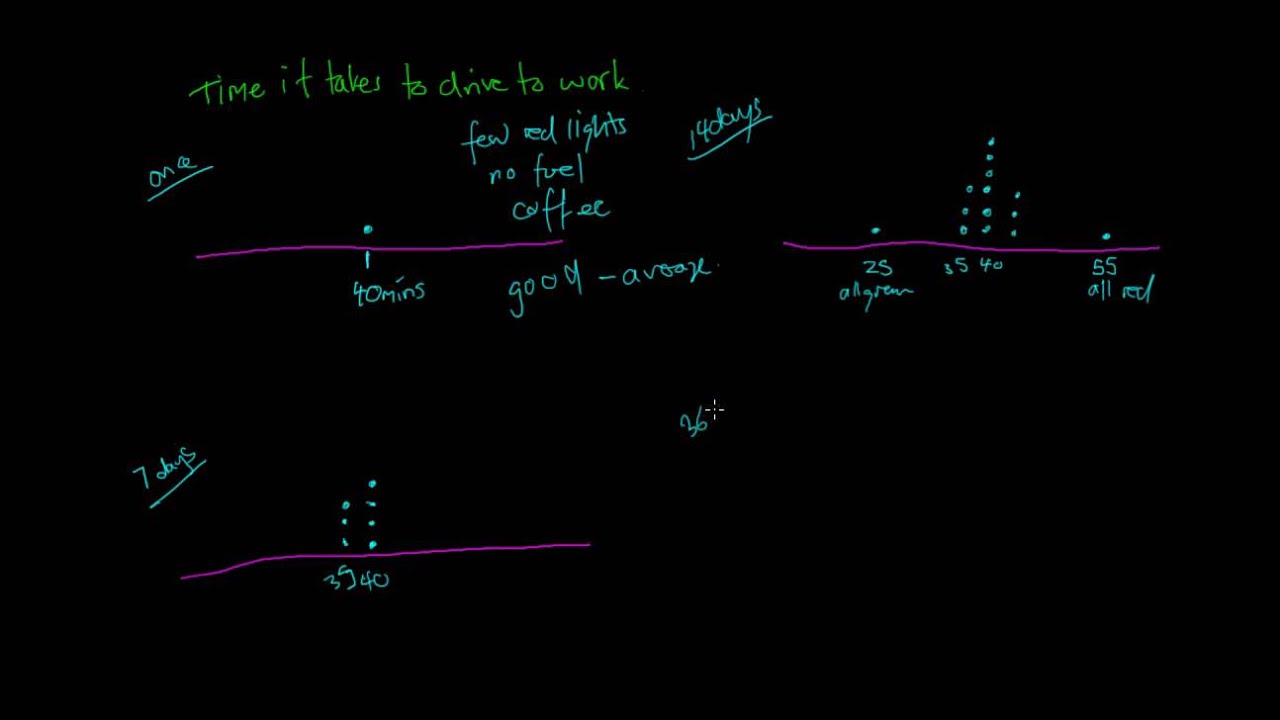 Time it takes to drive to work.
once
few red lights
no fuel
coffee
40mins
good - average.
14days
25 35 40 55
all green all red
7 days
35 40
36